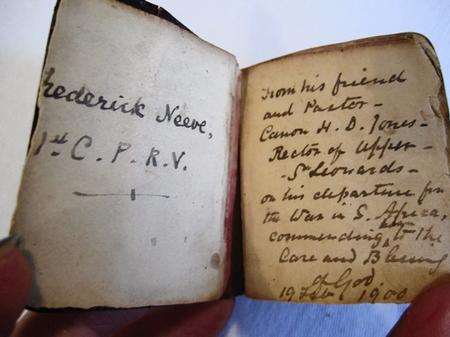 Frederick Neeve,
1st C. P. R. V.
From his friend
and Pastor -
Canon H. D. Jones -
Rector of Upper -
St Leonards -
on his departure for
the War in S. Africa,
commending him to the
Care and Blessing
of God,
19 Feb 1900